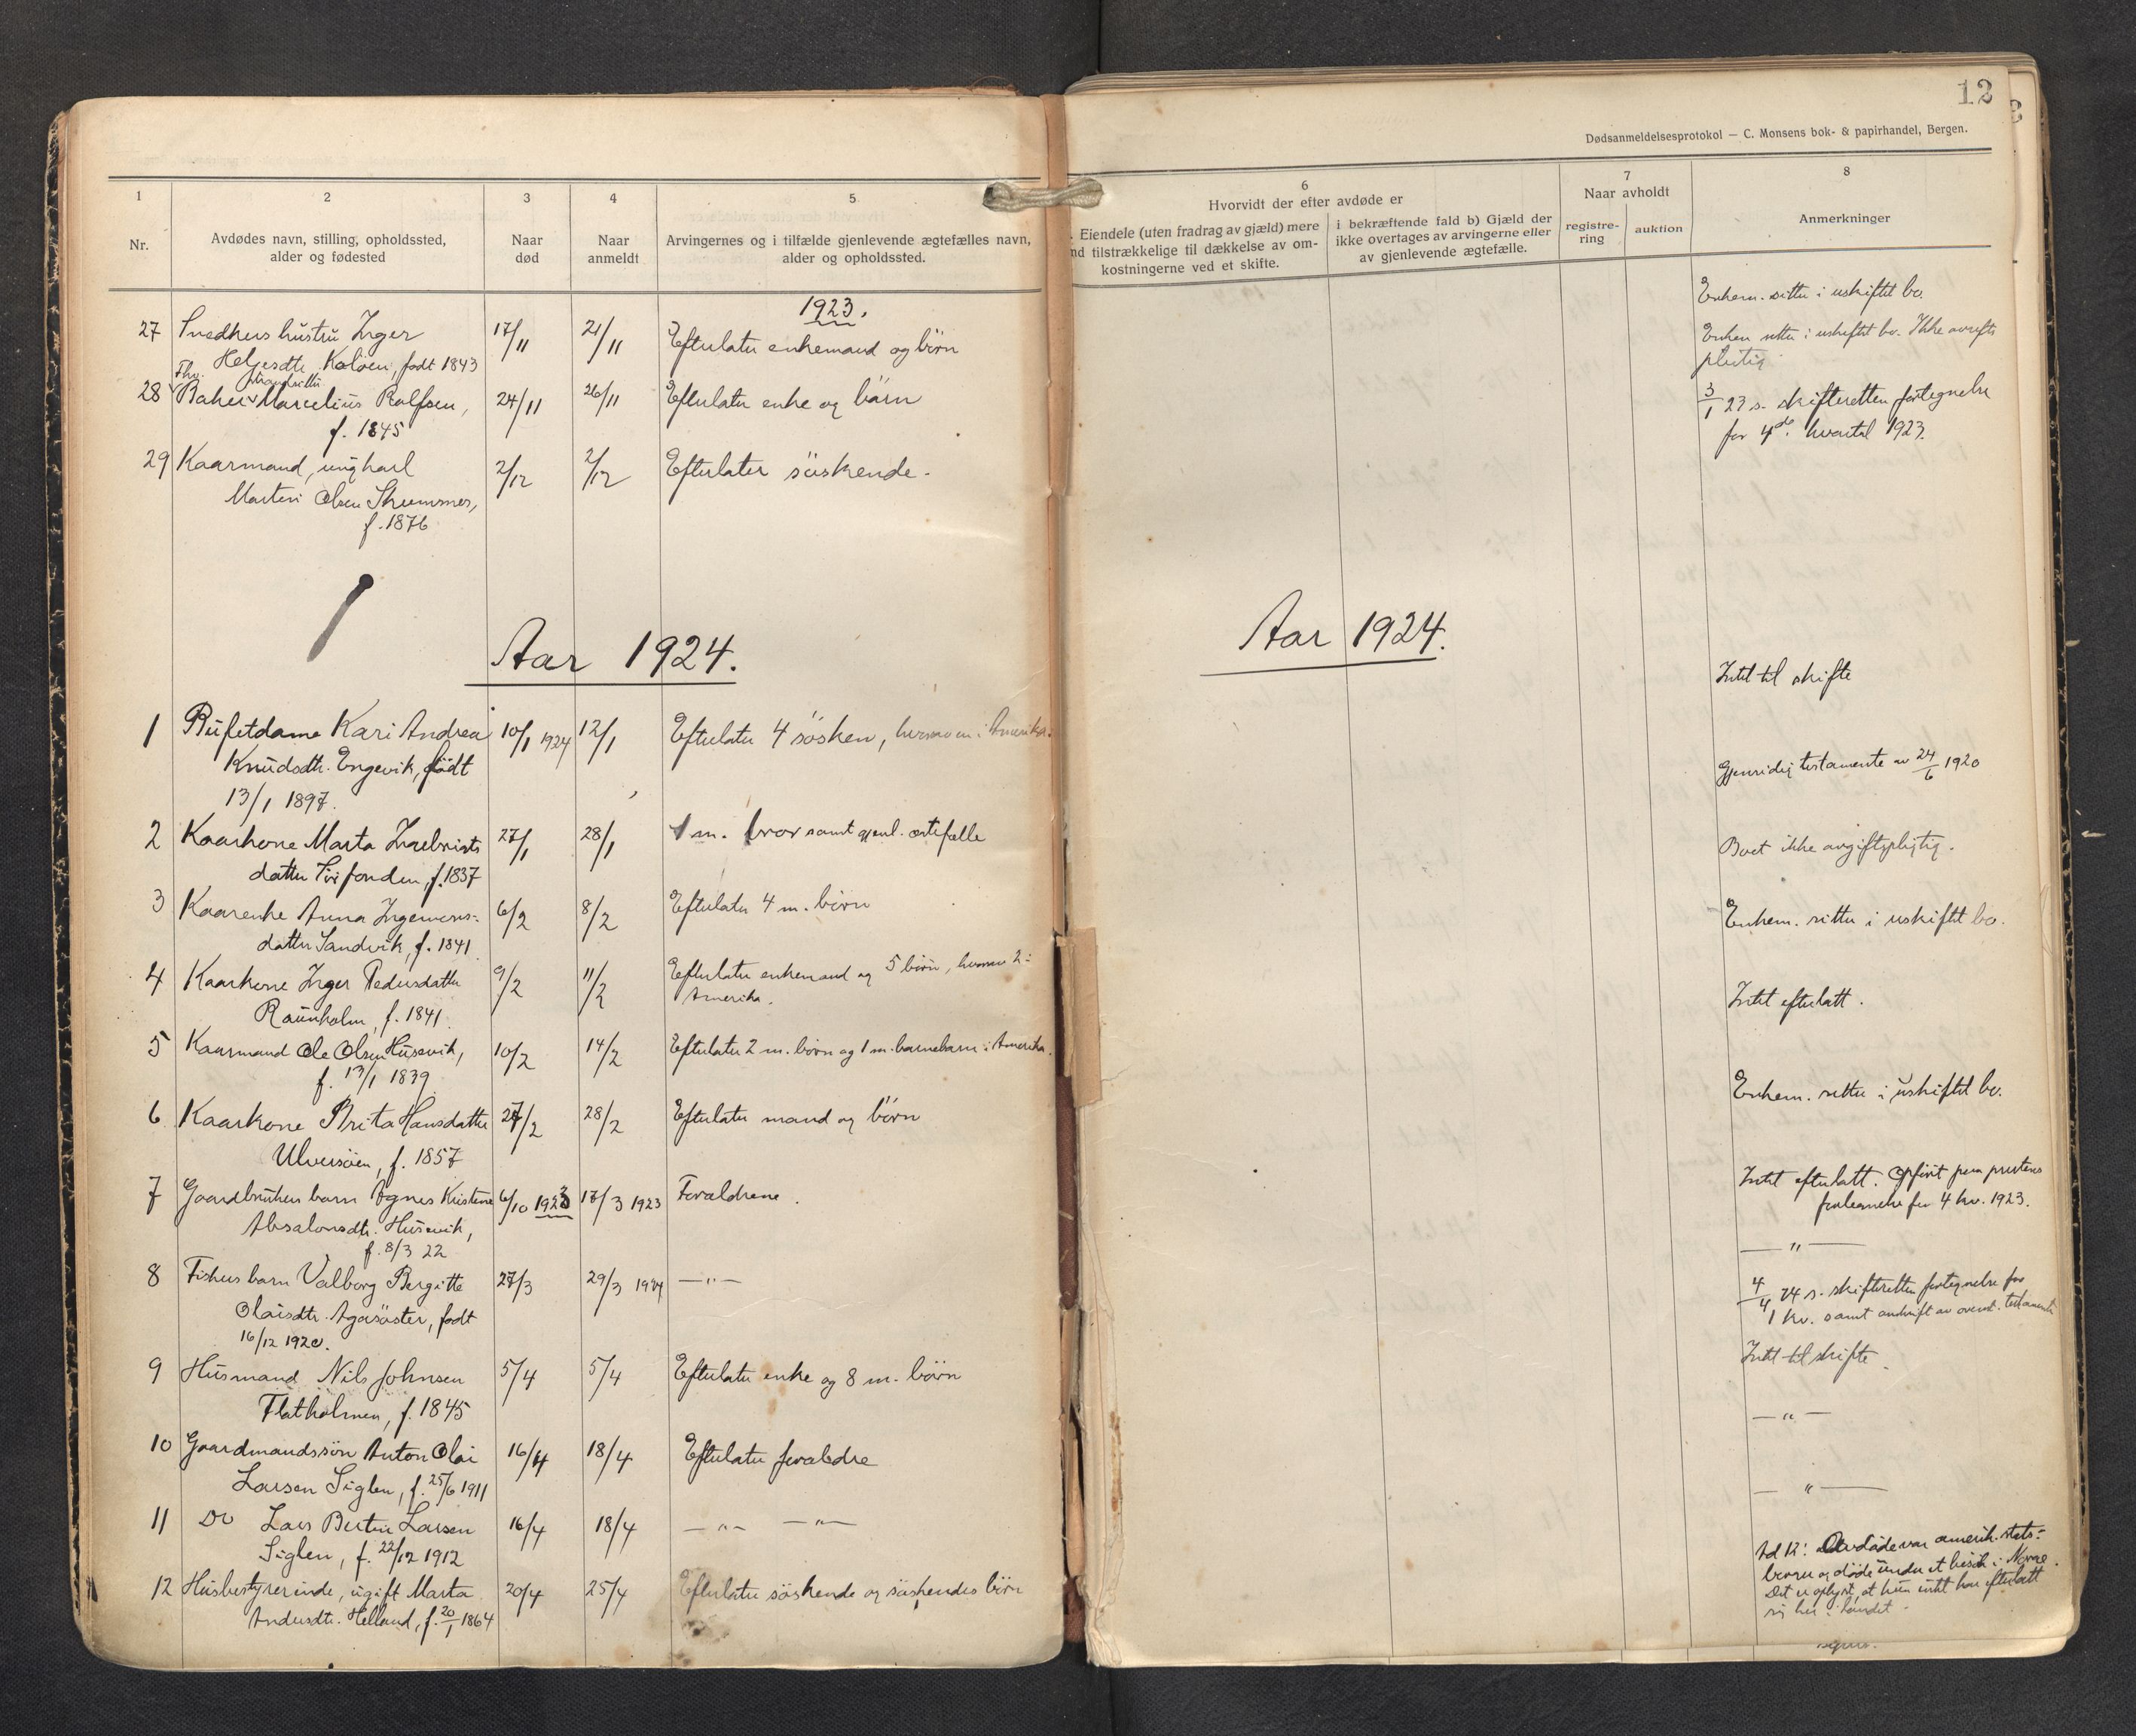 12
Dødsanmeldelsesprotokol — C. Monsens bok- & papirhandel, Bergen.
1
2
3
4
5
Nr.
Avdødes navn, stilling, opholdssted,
alder og fødested
Naar
død
Naar
anmeldt
Arvingernes og i tilfælde gjenlevende ægtefælles navn,
alder og opholdssted.
6
Hvorvidt der efter avdøde er
Eiendele (uten fradrag av gjæld) mere
nd tilstrækkelige til dækkelse av om-
kostningerne ved et skifte.
i bekræftende fald b) Gjæld der
ikke overtages av arvingerne eller
av gjenlevende ægtefælle.
7
Naar avholdt
registre-
ring
auktion
8
Anmerkninger
1923.
27 Snedkers hustru Inger 17/11 21/11 Efterlater enkemand og børn
Helgesdtr. Koløen, født 1843
Fhv. strandsitter
28 Baker Marcelius Rolfsen, 24/11 26/11 Efterlater enke og børn
f. 1845
29 Kaarmand, ungkarl 2/12 2/12 Efterlater søskende.
Martin Olsen Skummer,
f. 1876
Enkem. sitter i uskiftet bo.
Enken sitter i uskiftet bo. Ikke avgifts
pligtig
3/1 23 s. skifteretten fortegnelse
for 4de kvartal 1923.
Aar 1924.
Aar 1924.
1 Bufetdame Kari Andrea 10/1 1924 12/1 Efterlater 4 søsken, hvorav en i Amerika.
Knudsdtr. Engevik, født
13/1 1897.
2 Kaarkone Marta Ingebrigts 27/1 28/1 1 m. bror samt gjenl. ektefelle
datter fonden, f. 1837
3 Kaarenke Anna Ingemors- 6/2 8/2 Efterlater 4 m. børn
datter Sandvik, f. 1841
4 Kaarkone Inger Pedersdatter 9/2 11/2 Efterlater enkemand og 5 børn, hvorav 2 i
Raunholm, f. 1841. Amerika.
5 Kaarmand Ole Olsen Husevik, 10/2 14/2 Efterlater 2 m. børn og 1 m. barnebarn i Amerika.
f. 13/1 1839
6 Kaarkone Brita Hansdatter 27/2 28/2 Efterlater mand og børn
Ulversøen, f. 1857
7 Gaardbrukers barn Agnes Kristene 6/10 1923 17/3 1923 Forældrene.
Absalonsdtr. Husevik,
f. 8/3 22
8 Fiskers barn Valborg Bergitte 27/3 29/3 1924 — " —
Olaisdtr. Agasøster, født
16/12 1920.
9 Husmand Nils Johnsen 5/4 5/4 Efterlater enke og 8 m. børn
Flatholmen, f. 1845
10 Gaardmandssøn Anton Olai 16/4 18/4 Efterlater forældre
Larsen Siglen, f. 25/6 1911
11 Do Lars Bertin Larsen 16/4 18/4 — " — — " —
Siglen, f. 22/12 1912
12 Husbestyrerinde, ugift Marta 20/4 25/4 Efterlater søskende og søskendes børn
Andersdtr. Helland, f. 20/1 1864
Intet til skifte
Gjensidig testamente av 24/6 1920
Boet ikke avgiftspligtig.
Enkem. sitter i uskiftet bo.
Intet efterlatt.
Enkem. sitter i uskiftet bo.
Intet efterlatt. Opført paa prestens
fortegnelse for 4 kv. 1923.
— " —
4/4 24 s. skifteretten fortegnelse for
1 kv. samt avskrift av ovenst. testamente
Intet til skifte.
— " —
— " —
Ad 12: Avdøde var amerik. stats-
borger og døde under et besøk i Norge.
Det er oplyst, at hun intet har efterlatt
sig her i landet.